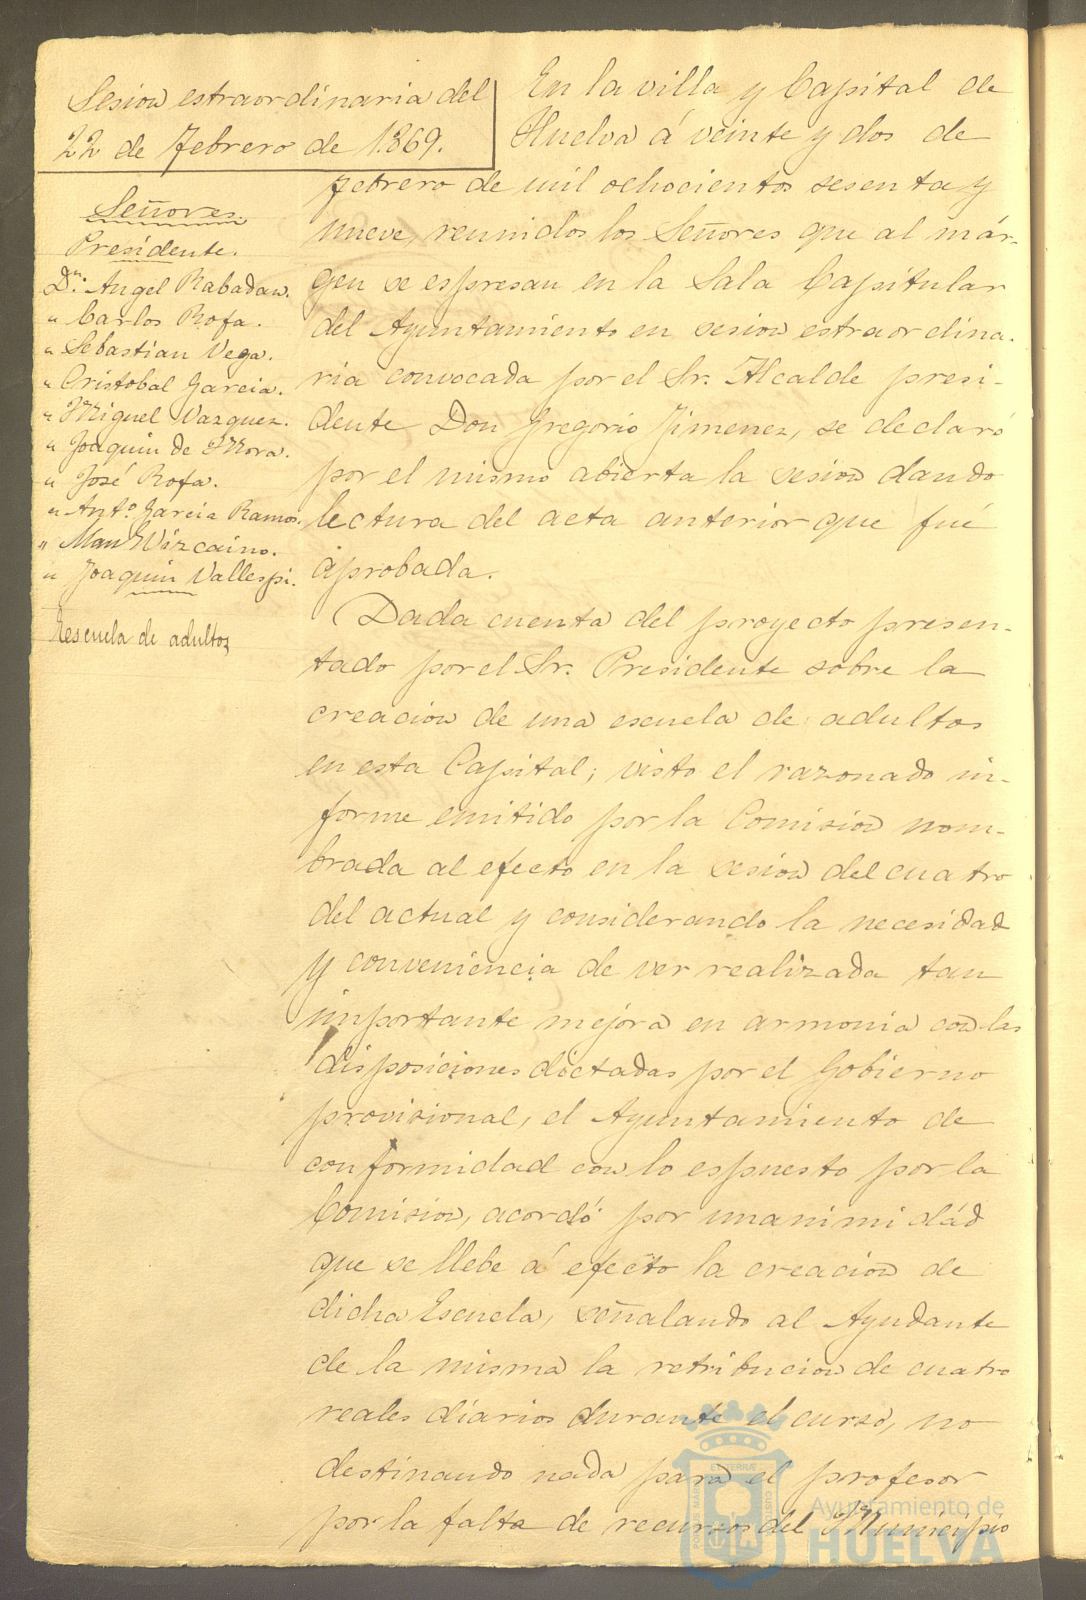 Sesion estraordinaria del
22 de Febrero de 1.869.
Señores.
Presidente.
Dn. Angel Rabadan.
" Carlos Rofa.
" Sebastian Vega.
" Cristobal Garcia.
" Miguel Vazquez.
" Joaquin de Mora.
" José Rofa.
" Antº Garcia Ramos.
" Man Vizcaino.
" Joaquin Vallespi.
Escuela de adultos
En la villa y Capital de
Huelva á veinte y dos de
Febrero de mil ochocientos sesenta y
nueve, reunidos los Señores que al már-
gen se espresan en la Sala Capitular
del Ayuntamiento en sesion estraordina-
ria convocada por el Sr. Alcalde presi-
dente Don Gregorio Jimenez, se declaró
por el mismo abierta la sesion dando
lectura del acta anterior que fué
aprobada.
Dada cuenta del proyecto presen-
tado por el Sr. Presidente sobre la
creacion de una escuela de adultos
en esta Capital; visto el razonado in-
forme emitido por la Comision nom-
brada al efecto en la sesion del cuatro
del actual y considerando la necesidad
y conveniencia de ver realizada tan
importante mejora en armonia con las
disposiciones dictadas por el Gobierno
provisional, el Ayuntamiento de
conformidad con lo espuesto por la
Comision, acordó por unanimidád
que se llebe á efecto la creacion de
dicha Escuela, señalando al Ayudante
de la misma la retribucion de cuatro
reales diarios durante el curso, no
destinando nada para el profesor
por la falta de recursos del Municipio
Ayuntamiento de
HUELVA